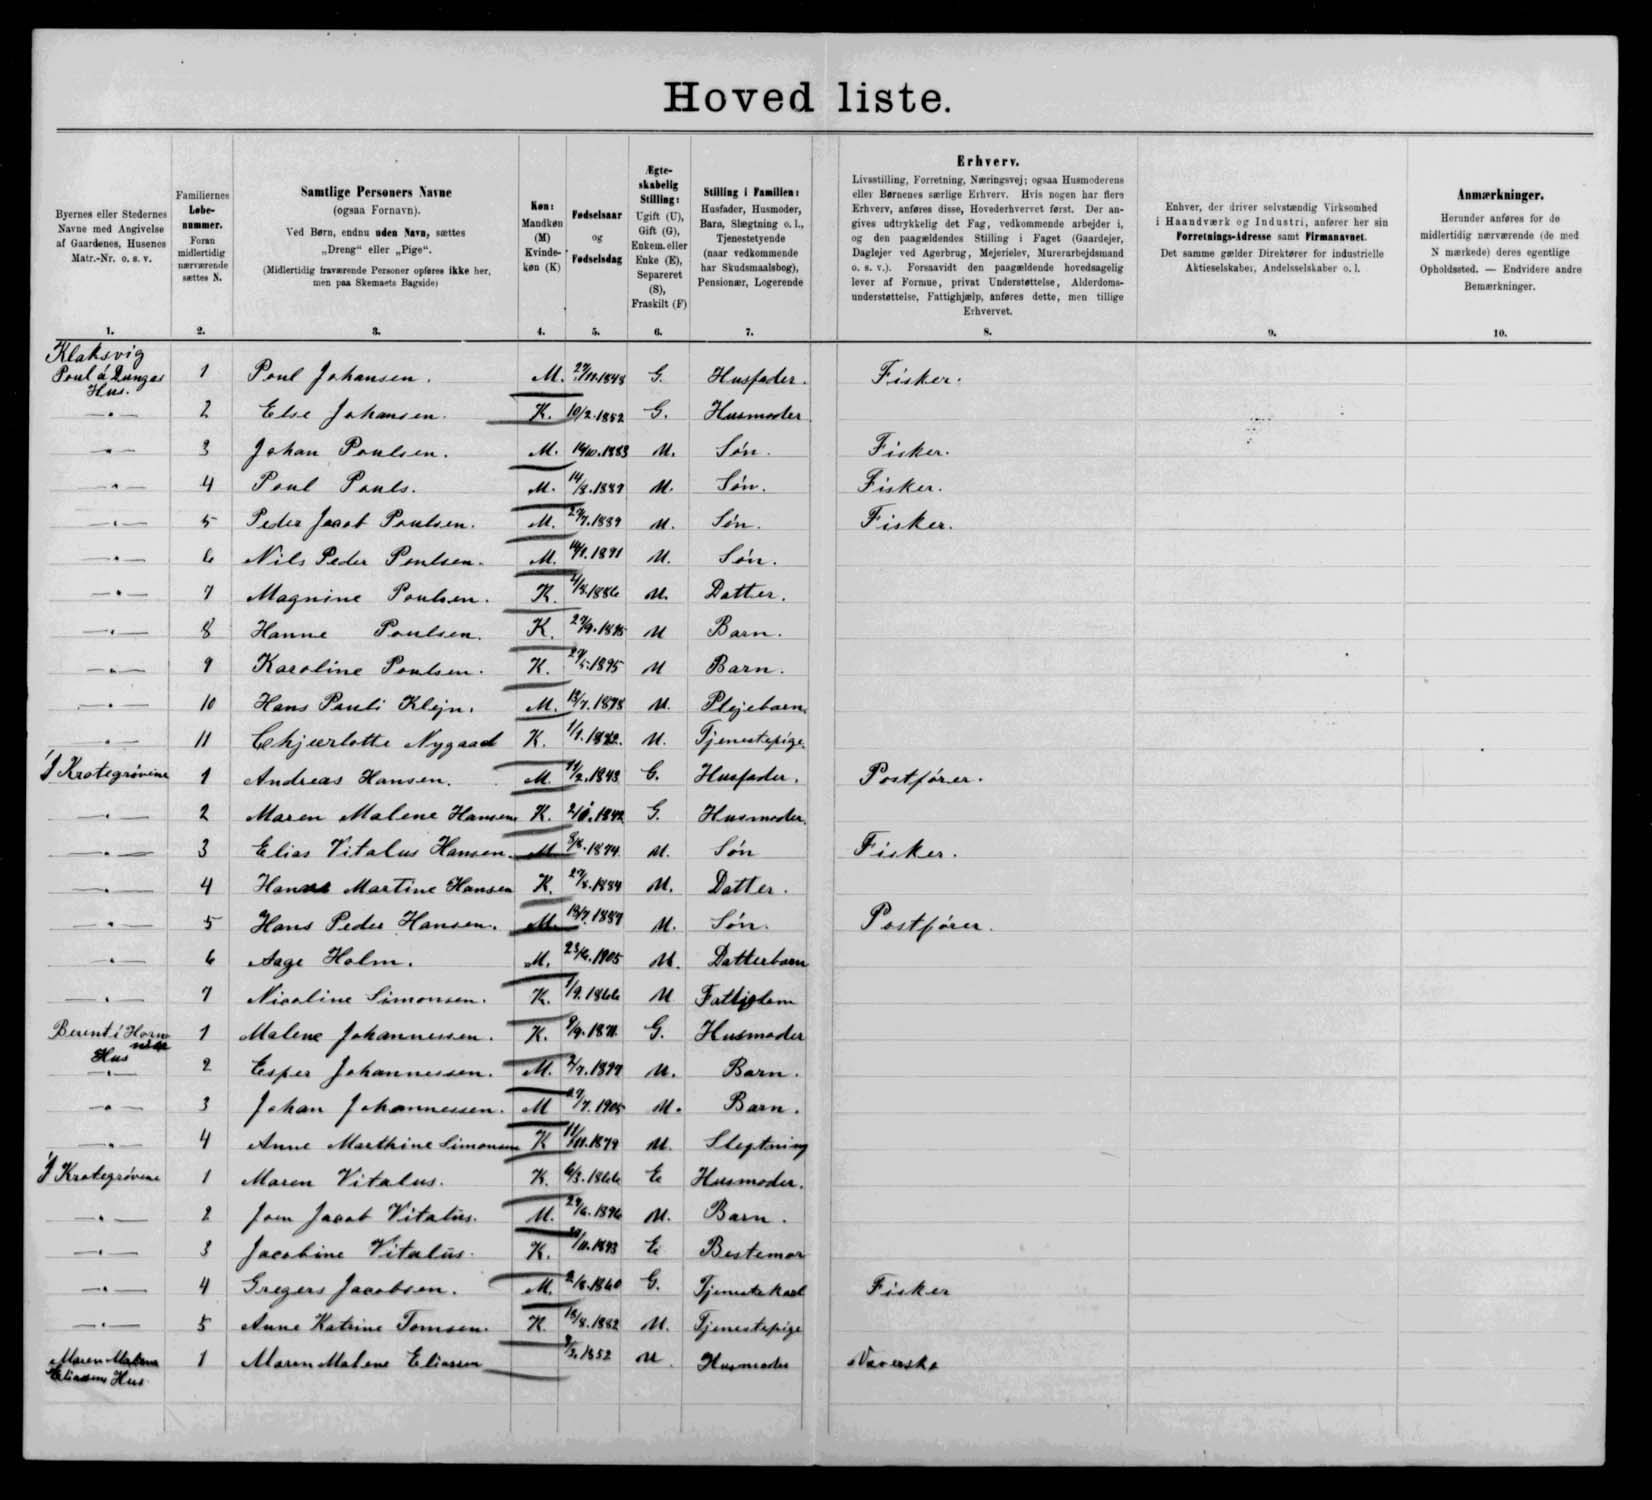 Hovedliste.
Byernes eller Stedernes
Navne med Angivelse
af Gaardenes, Husenes
Matr.-Nr. o. s. v.
1.
Familiernes
Løbe-
nummer.
Foran
midlertidig
nærværende
sættes N.
2.
Samtlige Personers Navne
(ogsaa Fornavn).
Ved Børn, endnu uden Navn, sættes
„Dreng“ eller „Pige“.
(Midlertidig fraværende Personer opføres ikke her,
men paa Skemaets Bagside)
3.
Køn:
Mandkøn
(M)
Kvinde-
køn (K)
4.
Fødselsaar
og
Fødselsdag
5.
Ægte-
skabelig
Stilling:
Ugift (U),
Gift (G),
Enkem. eller
Enke (E),
Separeret
(S),
Fraskilt (F)
6.
Stilling i Familien:
Husfader, Husmoder,
Barn, Slægtning o. l.,
Tjenestetyende
(naar vedkommende
har Skudsmaalsbog),
Pensionær, Logerende
7.
Erhverv.
Livsstilling, Forretning, Næringsvej; ogsaa Husmoderens
eller Børnenes særlige Erhverv. Hvis nogen har flere
Erhverv, anføres disse, Hovederhvervet først. Der an-
gives udtrykkelig det Fag, vedkommende arbejder i,
og den paagældendes Stilling i Faget (Gaardejer,
Daglejer ved Agerbrug, Mejerielev, Murerarbejdsmand
o. s. v.). Forsaavidt den paagældende hovedsagelig
lever af Formue, privat Understøttelse, Alderdoms-
understøttelse, Fattighjælp, anføres dette, men tillige
Erhvervet.
8.
Enhver, der driver selvstændig Virksomhed
i Haandværk og Industri, anfører her sin
Forretnings-Adresse samt Firmanavnet.
Det samme gælder Direktører for industrielle
Aktieselskaber, Andelsselskaber o. l.
9.
Anmærkninger.
Herunder anføres for de
midlertidig nærværende (de med
N mærkede) deres egentlige
Opholdssted. — Endvidere andre
Bemærkninger.
10.
Klaksvig
Poul á Dunges Hus. 1 Poul Johansen. M. 1848 G. Husfader. Fisker.
—"— 2 Else Johansen. K. 10/2.1852 G. Husmoder
—"— 3 Johan Poulsen. M. 14/10.1883 U. Søn. Fisker.
—"— 4 Poul Pouls. M. U. Søn. Fisker.
—"— 5 Peder Jacob Poulsen. M. 1889 U. Søn. Fisker.
—"— 6 Nils Peder Poulsen. M. 1891 U. Søn.
—"— 7 Magnine Poulsen. K. 1886 U. Datter.
—"— 8 Hanne Poulsen. K. U Barn.
—"— 9 Karoline Poulsen. K. 1895 U Barn.
—"— 10 Hans Pauli Klejn. M. U. Plejebarn.
—"— 11 Chjærlotte Nygaad K. U. Tjenestepige.
Í Krotegrøvine 1 Andreas Hansen. M. 11/2.1843 G. Husfader. Postfører.
—"— 2 Maren Malene Hansen K. 1842 G. Husmoder.
—"— 3 Elias Vitalus Hansen. M. 1874. U. Søn Fisker.
—"— 4 Martine Hansen K. 1884 U. Datter.
—"— 5 Hans Peder Hansen. M. 1887 U. Søn. Postfører.
—"— 6 Aage Holm. M. 23/6.1905 U. Datterbarn
—"— 7 Nicoline Simonsen. K. 1/9.1866 U Fattiglem
Berent i Horninum Hus 1 Malene Johannessen. K. 9/9.1871. G. Husmoder
—"— 2 Esper Johannessen. M. 2/7.1897 U. Barn.
—"— 3 Johan Johannessen. M 1905 U. Barn.
—"— 4 Anne Marthine Simonsen K 11/11.1879 U. Slegtning
Í Krotegrøvine 1 Maren Vitalus. K. 6/3.1866 E Husmoder.
—"— 2 Joen Jacob Vitalus. M. 1896 U. Barn.
—"— 3 Jacobine Vitalus. K. E Bestemor
—"— 4 Gregers Jacobsen. M. 2/8.1860 G. Tjenestekarl Fisker
—"— 5 Anne Katrine Tomsen. K. 18/8.1882 U. Tjenestepige
Maren Malena Eliasens Hus 1 Maren Malene Eliassen 1852 U. Husmoder Væverske